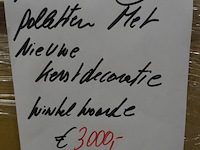 palletten Met
Nieuwe
kerstdecoratie
winkelwaarde
€ 3000,-